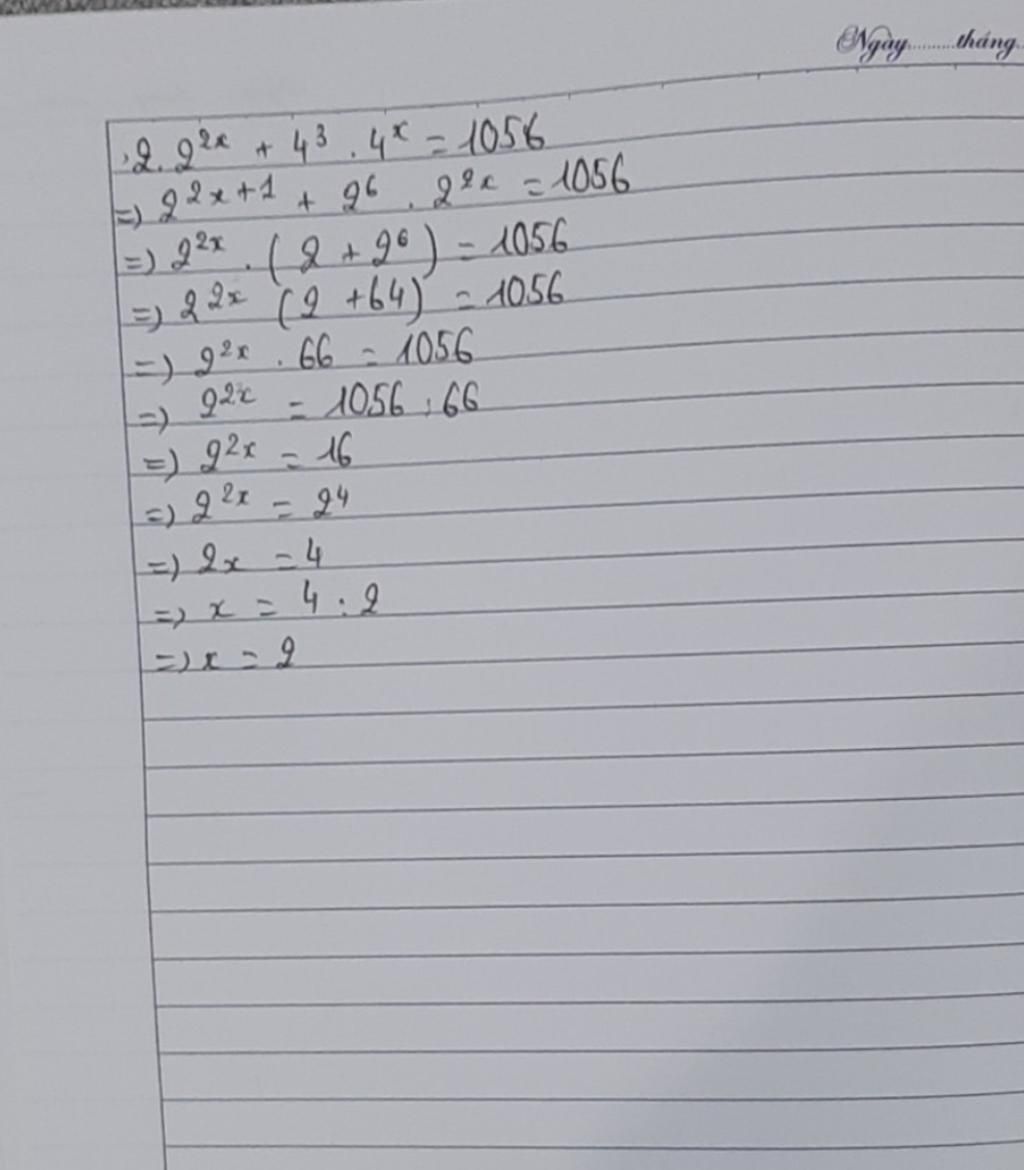 Ngày..........tháng..
2. 2^{2x} + 4^3 . 4^x = 1056
=) 2^{2x+1} + 2^6 . 2^{2x} = 1056
=) 2^{2x} . ( 2 + 2^6 ) = 1056
=) 2^{2x} ( 2 + 64) = 1056
=) 2^{2x} . 66 = 1056
=) 2^{2x} = 1056 : 66
=) 2^{2x} = 16
=) 2^{2x} = 2^4
=) 2x = 4
=) x = 4 : 2
=) x = 2